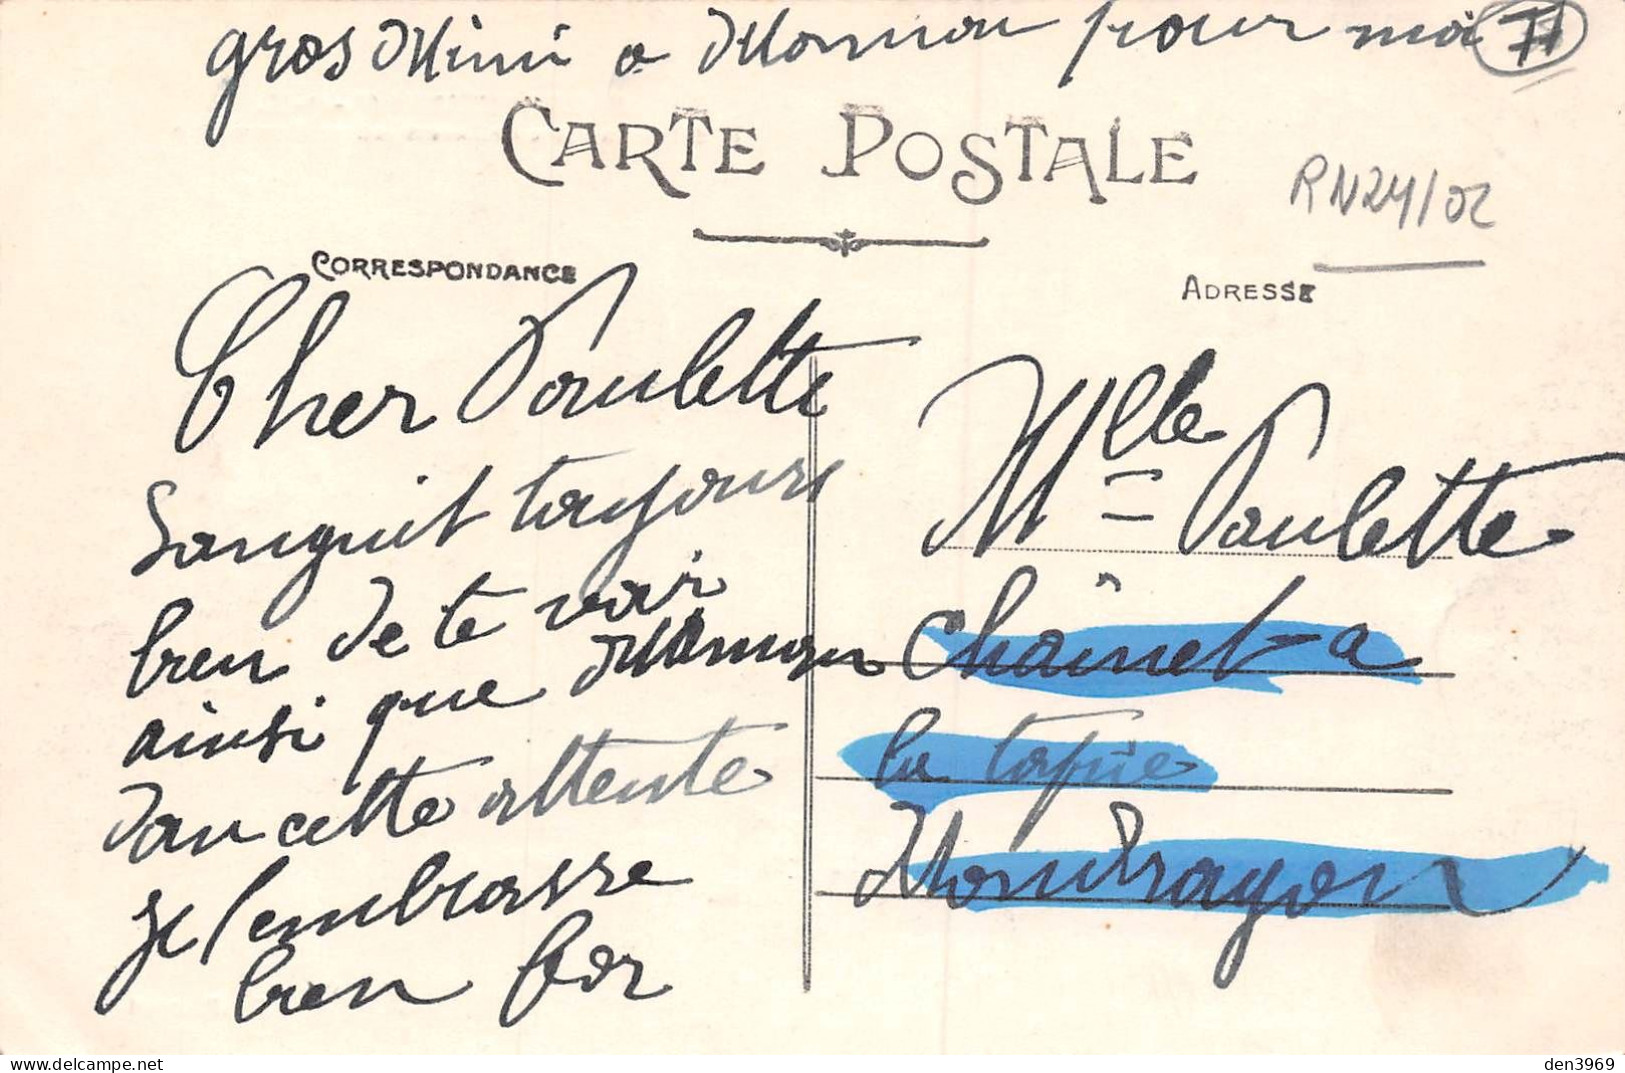 gros Mimi a Maman pour moi
77
CARTE POSTALE
RN24/02
CORRESPONDANCE
ADRESSE
Cher Paulette
Languit toujours
bien de te voir
ainsi que Maman
dan cette attente
je t'embrasse
bien for
Mlle Paulette
Chaînet a
la
Mondragon
den3969